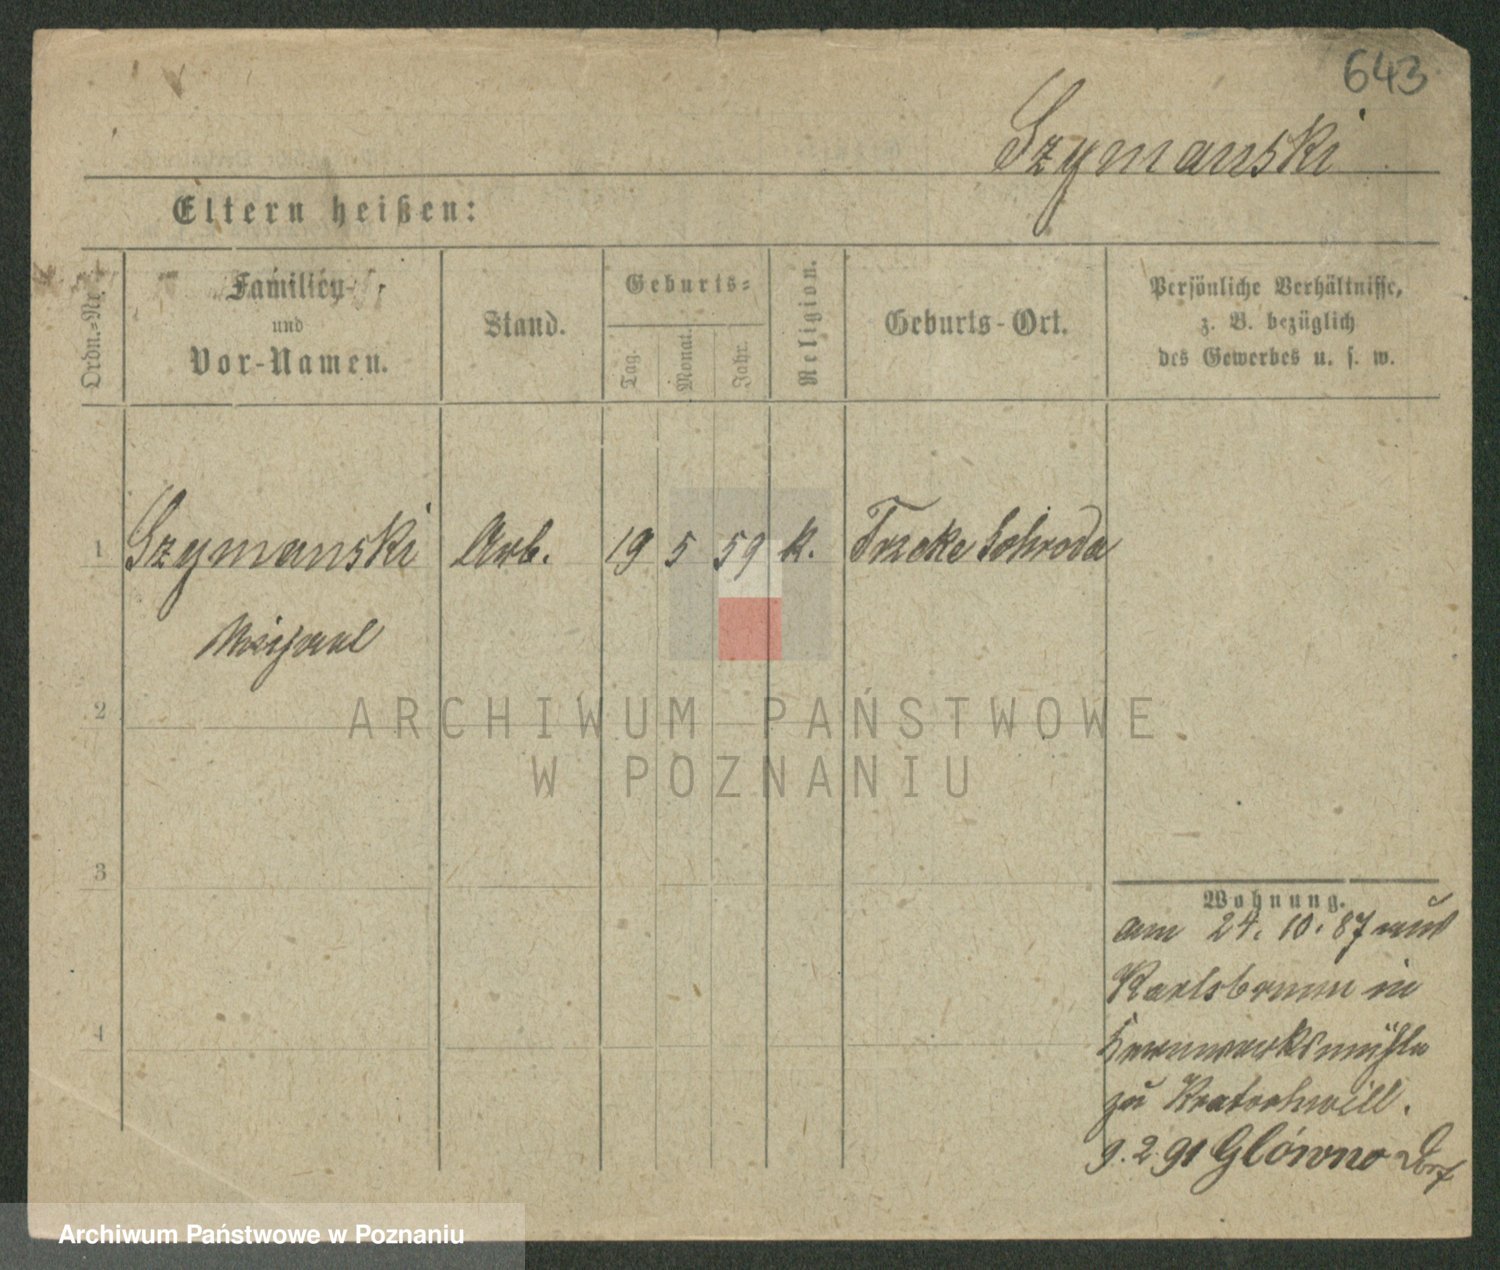 643
Szymanski
Eltern heißen:
Ordn.-Nr.
Familien-
und
Vor-Namen.
Stand.
Geburts-
Tag.
Monat.
Jahr.
Religion.
Geburts-Ort.
Persönliche Verhältnisse,
z. B. bezüglich
des Gewerbes u. s. w.
1 Szymanski Arb. 19 5 59 k. Trzeke Schroda
Michael
2
3
4
ARCHIWUM PAŃSTWOWE
W POZNANIU
Wohnung.
am 24. 10. 87 aus
Karlsbrunn in
zu Kratochwill.
9. 2. 91 Glówno Dorf
Archiwum Państwowe w Poznaniu